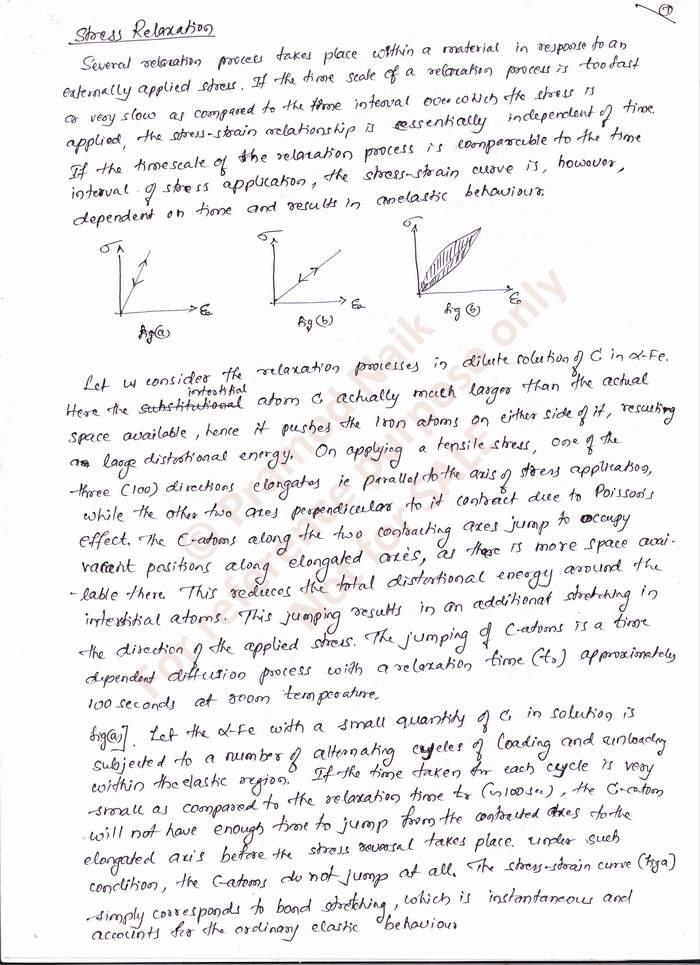 ①
Stress Relaxation
Several relaxation process takes place within a material in response to an
externally applied stress. If the time scale of a relaxation process is too fast
or very slow as compared to the time interval over which the stress is
applied, the stress-strain relationship is essentially independent of time.
If the timescale of the relaxation process is comparable to the time
interval of stress application, the stress-strain curve is, however,
dependent on time and results in anelastic behaviour.
σ σ σ
ε ε ε
fig(a) fig(b) fig(b)
Let us consider the relaxation processes in dilute solution of C in α-Fe.
interstitial
Here the substitutional atom C actually much larger than the actual
space available, hence it pushes the Iron atoms on either side of it, resulting
in large distortional energy. On applying a tensile stress, one of the
three (100) directions elongates ie parallel to the axis of stress application,
while the other two axes perpendicular to it contract due to Poisson's
effect. The C-atoms along the two contracting axes jump to occupy
vacant positions along elongated axis, as there is more space avai-
-lable there. This reduces the total distortional energy around the
interstitial atoms. This jumping results in an additional stretching in
the direction of the applied stress. The jumping of C-atoms is a time
dependent diffusion process with a relaxation time (tr) approximately
100 seconds at room temperature.
fig(a)]. Let the α-Fe with a small quantity of C, in solution is
subjected to a number of alternating cycles of loading and unloading
within the elastic region. If the time taken for each cycle is very
small as compared to the relaxation time tr (~100 sec), the C-atom
will not have enough time to jump from the contracted axes to the
elongated axis before the stress reversal takes place. under such
condition, the C-atoms do not jump at all. The stress-strain curve (fig a)
simply corresponds to bond stretching, which is instantaneous and
accounts for the ordinary elastic behaviour
© Pramod Naik
For reference purpose only
Not for Sale